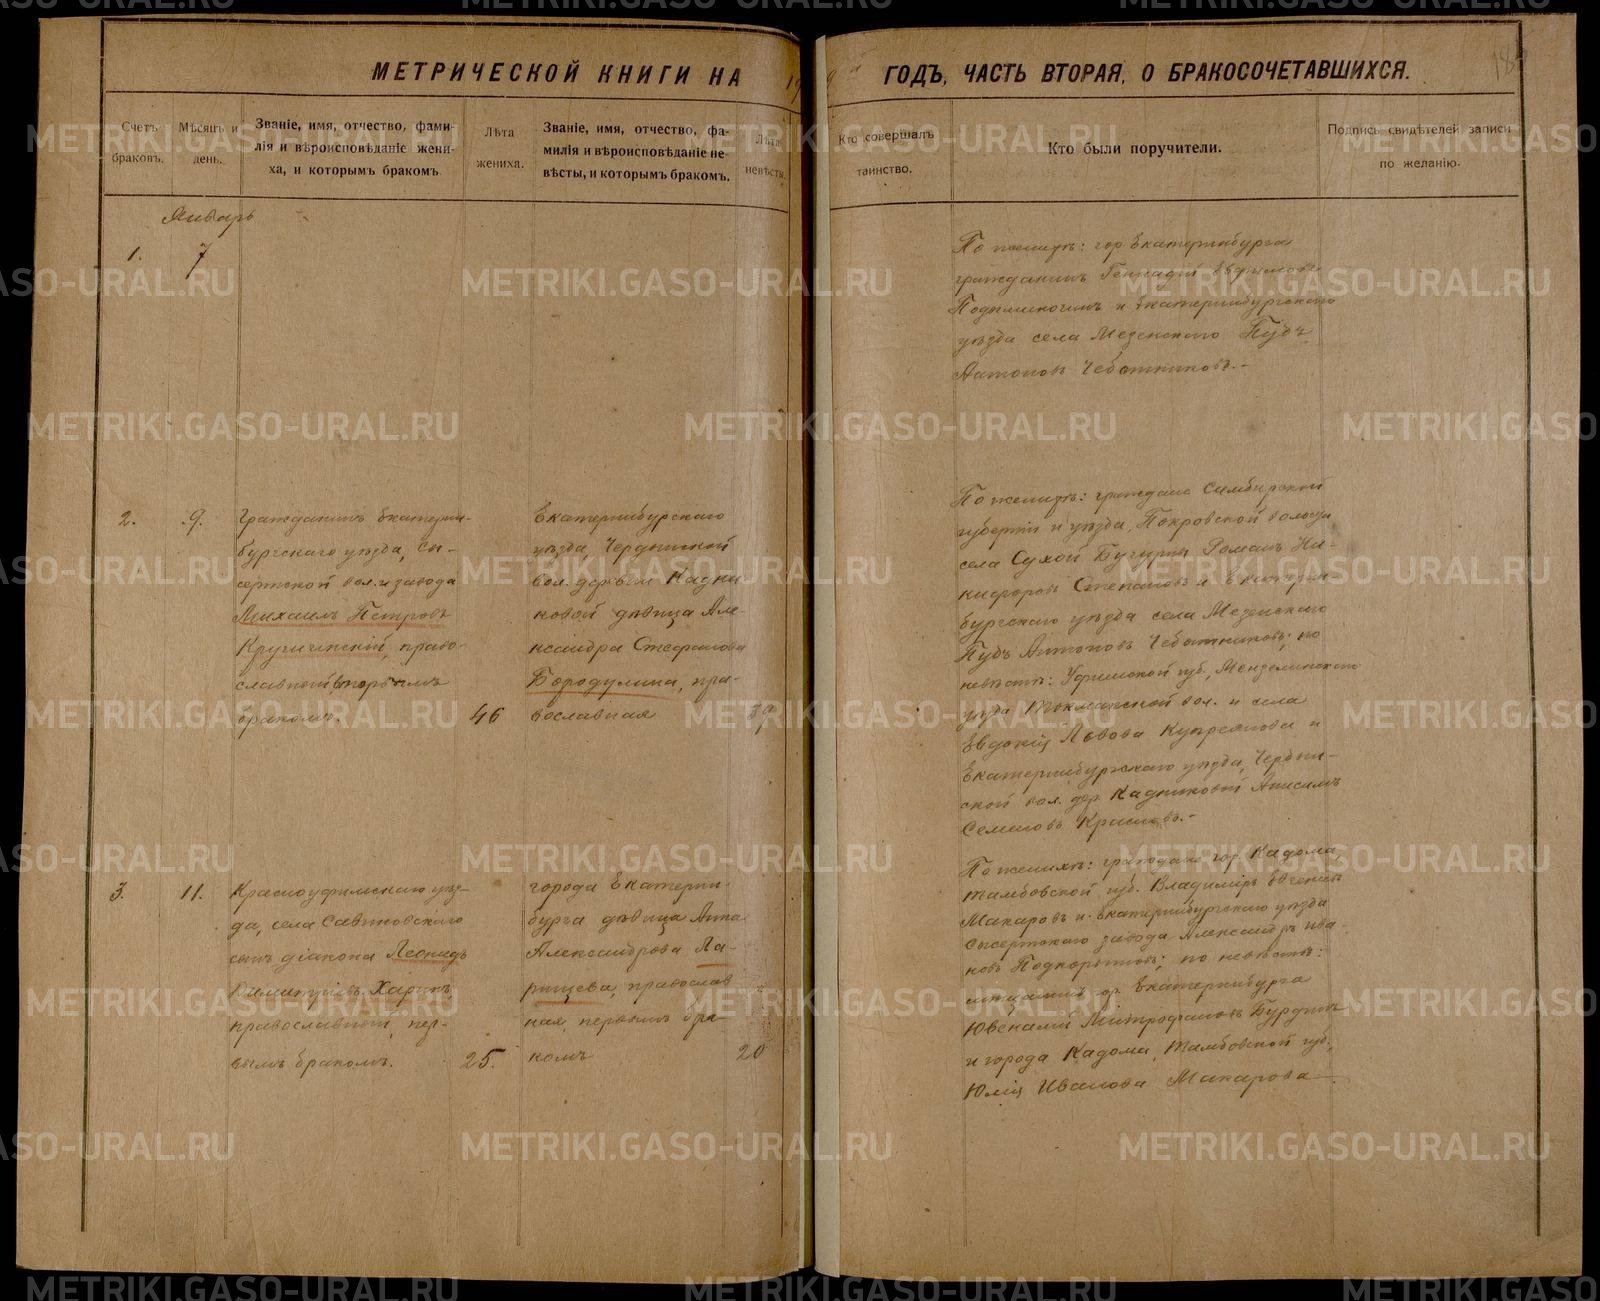 МЕТРИЧЕСКОЙ КНИГИ НА 19
ГОДЪ, ЧАСТЬ ВТОРАЯ, О БРАКОСОЧЕТАВШИХСЯ.
Счетъ браковъ.
Мѣсяцъ и день.
Званіе, имя, отчество, фами-
лія и вѣроисповѣданіе жени-
ха, и которымъ бракомъ
Лѣта
жениха.
Званіе, имя, отчество, фа-
милія и вѣроисповѣданіе не-
вѣсты, и которымъ бракомъ.
Лѣта
невѣсты.
Кто совершалъ
таинство.
Кто были поручители.
Подпись свидѣтелей записи
по желанію.
Январь
1. 7
По женихѣ: гор. Екатеринбурга
гражданинъ Геннадій
и Екатеринбургскаго
уѣзда села Мезенскаго Пудъ
Антоновъ Чеботниковъ.-
2. 9.
Гражданинъ Екатерин-
бургскаго уѣзда, Сы-
сертской вол. и завода
Михаилъ Петровъ
Кручинскій, право-
славный, вторымъ
бракомъ.
46
Екатеринбургскаго
уѣзда,
вол. деревни Кадни
ковой дѣвица Але-
ксандра Стефанова
Бородулина, пра-
вославная
39
По женихѣ: граждане Симбирской
губерніи и уѣзда, Покровской волости
села Сухой Бугурны Романъ Ни-
кифоровъ Степановъ и Екатерин-
бургскаго уѣзда села Мезенскаго
Пудъ Антоновъ Чеботниковъ; по
невѣстѣ: Уфимской губ., Мензелинскаго
уѣзда Токмакской вол. и села
Евдокія Львова Купреянова и
Екатеринбургскаго уѣзда,
ской вол. дер. Кадниковой Анисимъ
Семеновъ
3. 11.
Красноуфимскаго уѣз-
да, села Савиновскаго
сынъ діакона Леонидъ
Димитріевъ Харинъ,
православный, пер-
вымъ бракомъ.
25.
города Екатерин-
бурга дѣвица Анна
Александрова Ла-
рищева, православ
ная, первымъ бра-
комъ
20
По женихѣ: граждане гор. Кадома,
Тамбовской губ. Владиміръ Евгеніевъ
Макаровъ и Екатеринбургскаго уѣзда
Сысертскаго завода Александръ Ива-
новъ Подкорытовъ; по невѣстѣ:
мѣщанинъ гор. Екатеринбурга
Ювеналій Митрофановъ
и города Кадома, Тамбовской губ.,
Юлія Иванова Макарова
METRIKI.GASO-URAL.RU